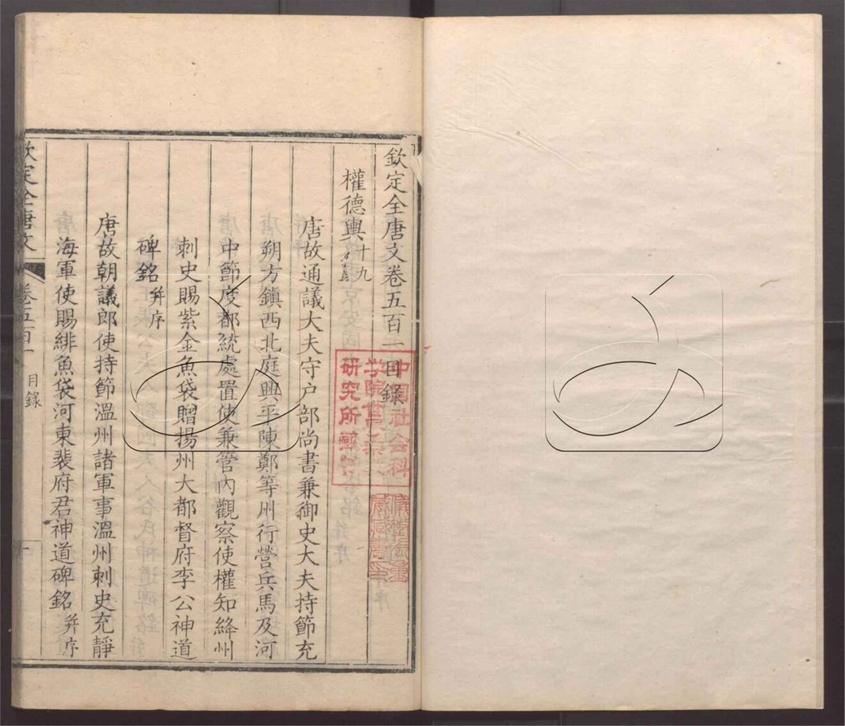 欽定全唐文卷五百一目錄
權德輿十九
唐故通議大夫守户部尚書兼御史大夫持節充
朔方鎮西北庭興平陳鄭等州行營兵馬及河
中節度都統處置使兼管內觀察使權知絳州
刺史賜紫金魚袋贈揚州大都督府李公神道
碑銘并序
唐故朝議郎使持節溫州諸軍事溫州刺史充靜
海軍使賜緋魚袋河東裴府君神道碑銘并序
欽定全唐文
卷五百一
目錄
一
中國社會科
學院
研究所